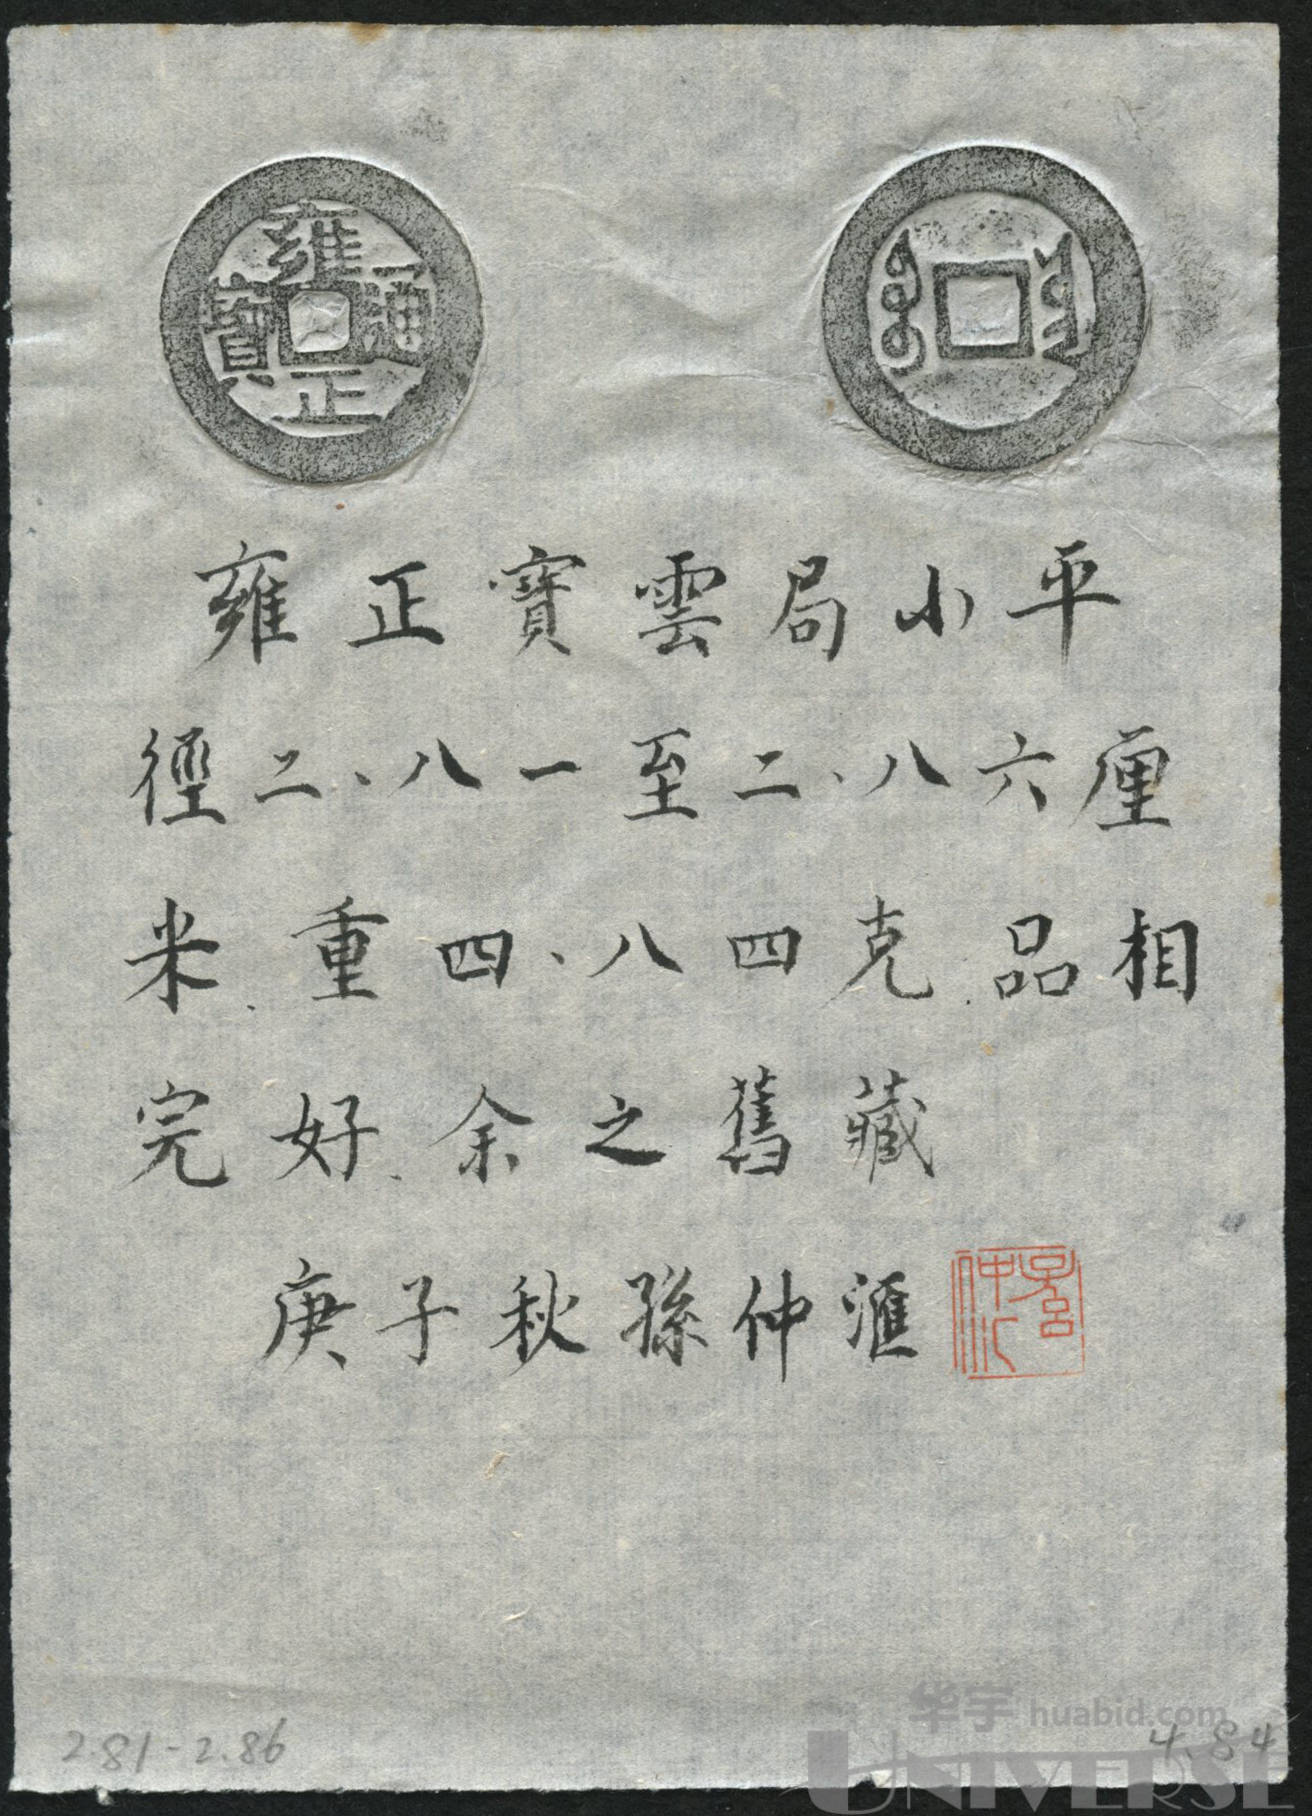 雍正通寶
雍正寶雲局小平
徑二、八一至二、八六厘
米.重四、八四克.品相
完好.余之舊藏
庚子秋孫仲滙
2.81-2.86
4.84
华宇 huabid.com
UNIVERSE